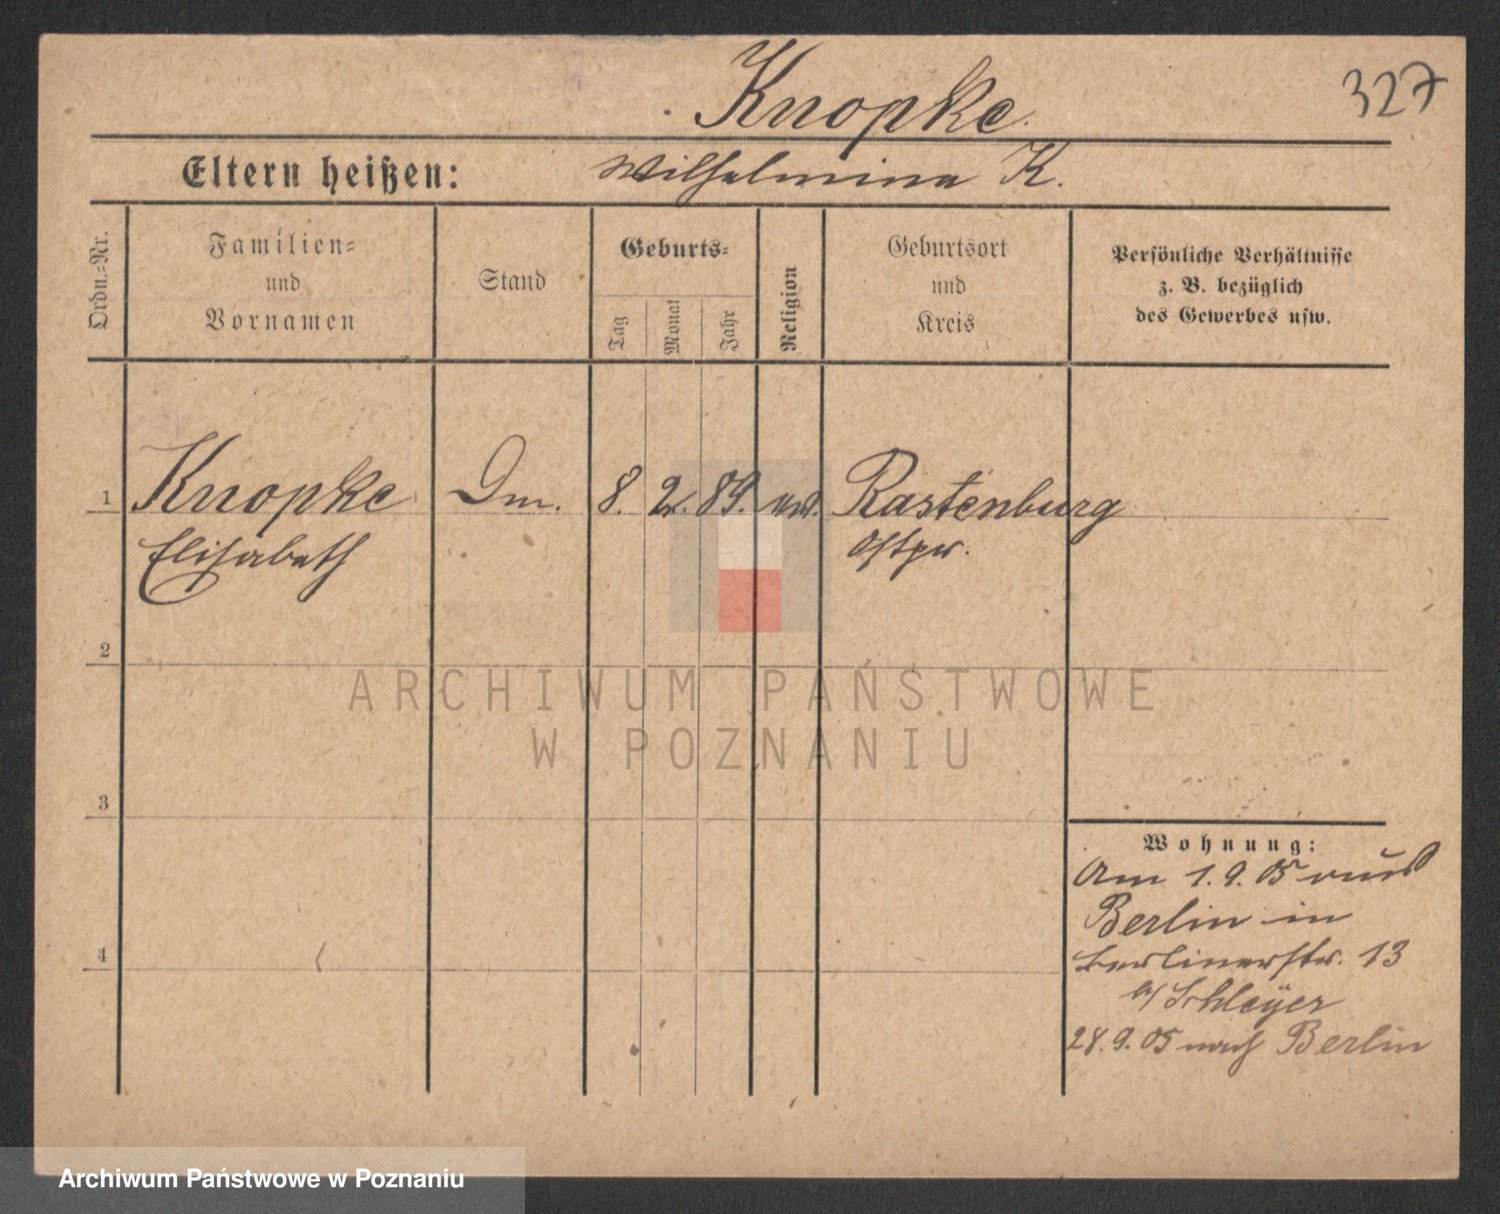 Knopke.
327
Eltern heißen:
Wilhelmina K.
Ordn.-Nr.
Familien-
und
Vornamen
Stand
Geburts-
Tag
Monat
Jahr
Religion
Geburtsort
und
Kreis
Persönliche Verhältnisse
z. B. bezüglich
des Gewerbes usw.
1 Knopke 8. 2. 89. Rastenburg
Elisabeth Ostpr.
2
ARCHIWUM PAŃSTWOWE
W POZNANIU
3
Wohnung:
Am 1.9.05 aus
Berlin in
Berlinerstr. 13
b/ Schleyer
4
28.9.05 nach Berlin
Archiwum Państwowe w Poznaniu